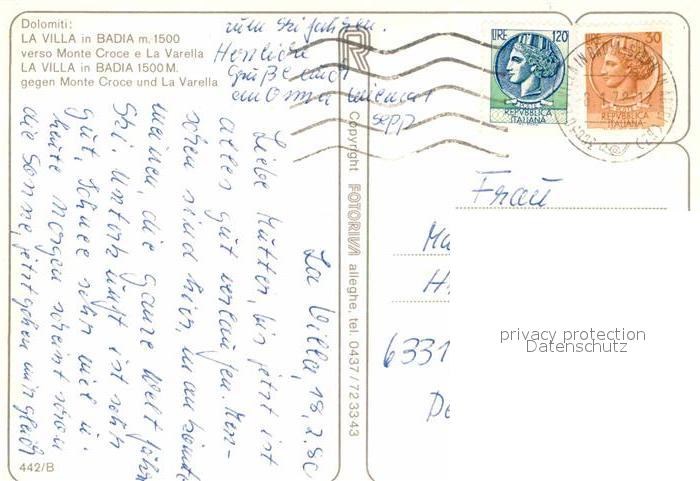 Dolomiti:
LA VILLA in BADIA m. 1500
verso Monte Croce e La Varella
LA VILLA in BADIA 1500 M.
gegen Monte Croce und La Varella
La Villa, 18,2.80
Liebe Mutter, bis jetzt ist
alles gut verlaufen. Men-
schen sind hier, man könnte
meinen, die ganze Welt fährt
Ski. Unterkunft ist sehr
gut, Schnee sehr viel u.
heute morgen scheint schon
die Sonne, jetzt gehen wir gleich
zum Skifahren.
Herzliche
Grüße auch
an Oma
Sepp
R
Copyright FOTORIVA alleghe, tel. 0437/723343
LIRE 120
POSTE
REPVBBLICA
ITALIANA
LIRE 30
POSTE
REPVBBLICA
ITALIANA
Frau
Ma
H
6331
De
privacy protection
Datenschutz
442/B